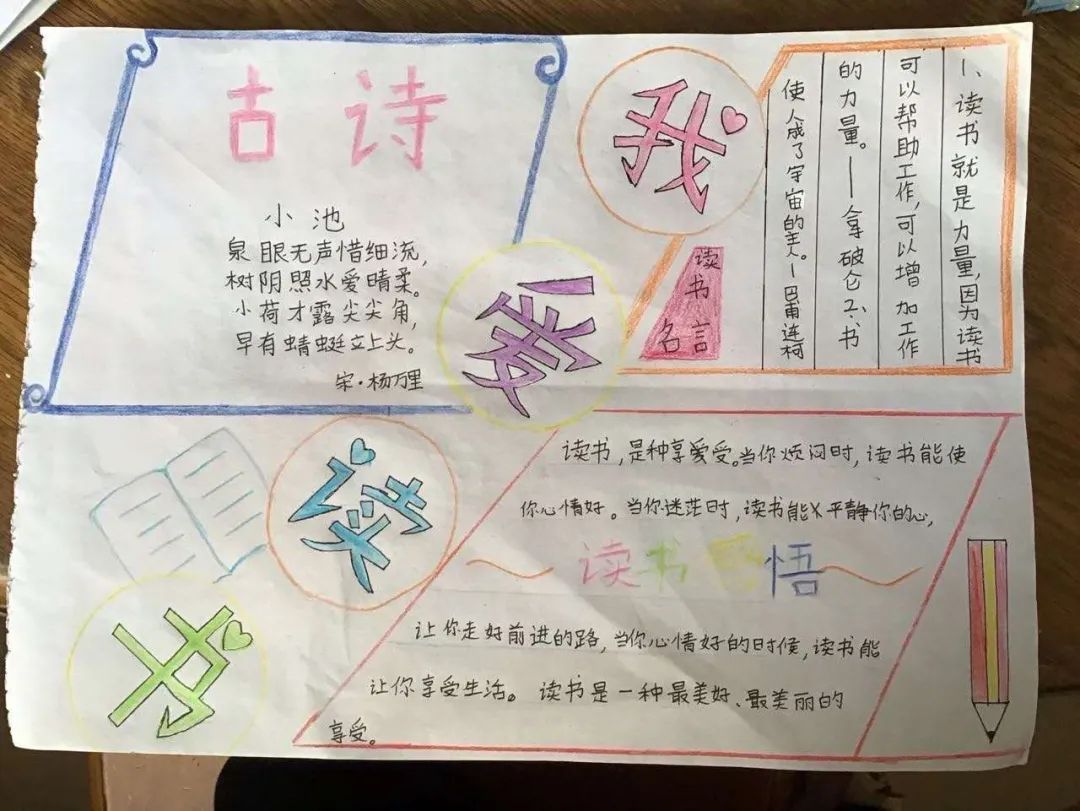 古诗
小池
泉眼无声惜细流,
树阴照水爱晴柔。
小荷才露尖尖角,
早有蜻蜓立上头。
宋·杨万里
我
爱
读
书
读书
名言
1、读书就是力量,因为读书
可以帮助工作,可以增加工作
的力量。——拿破仑 2、书
使人成了宇宙的主人。—巴甫连柯
读书,是种享爱受。当你烦闷时,读书能使
你心情好。当你迷茫时,读书能平静你的心,
读书感悟
让你走好前进的路,当你心情好的时候,读书能
让你享受生活。读书是一种最美好、最美丽的
享受。